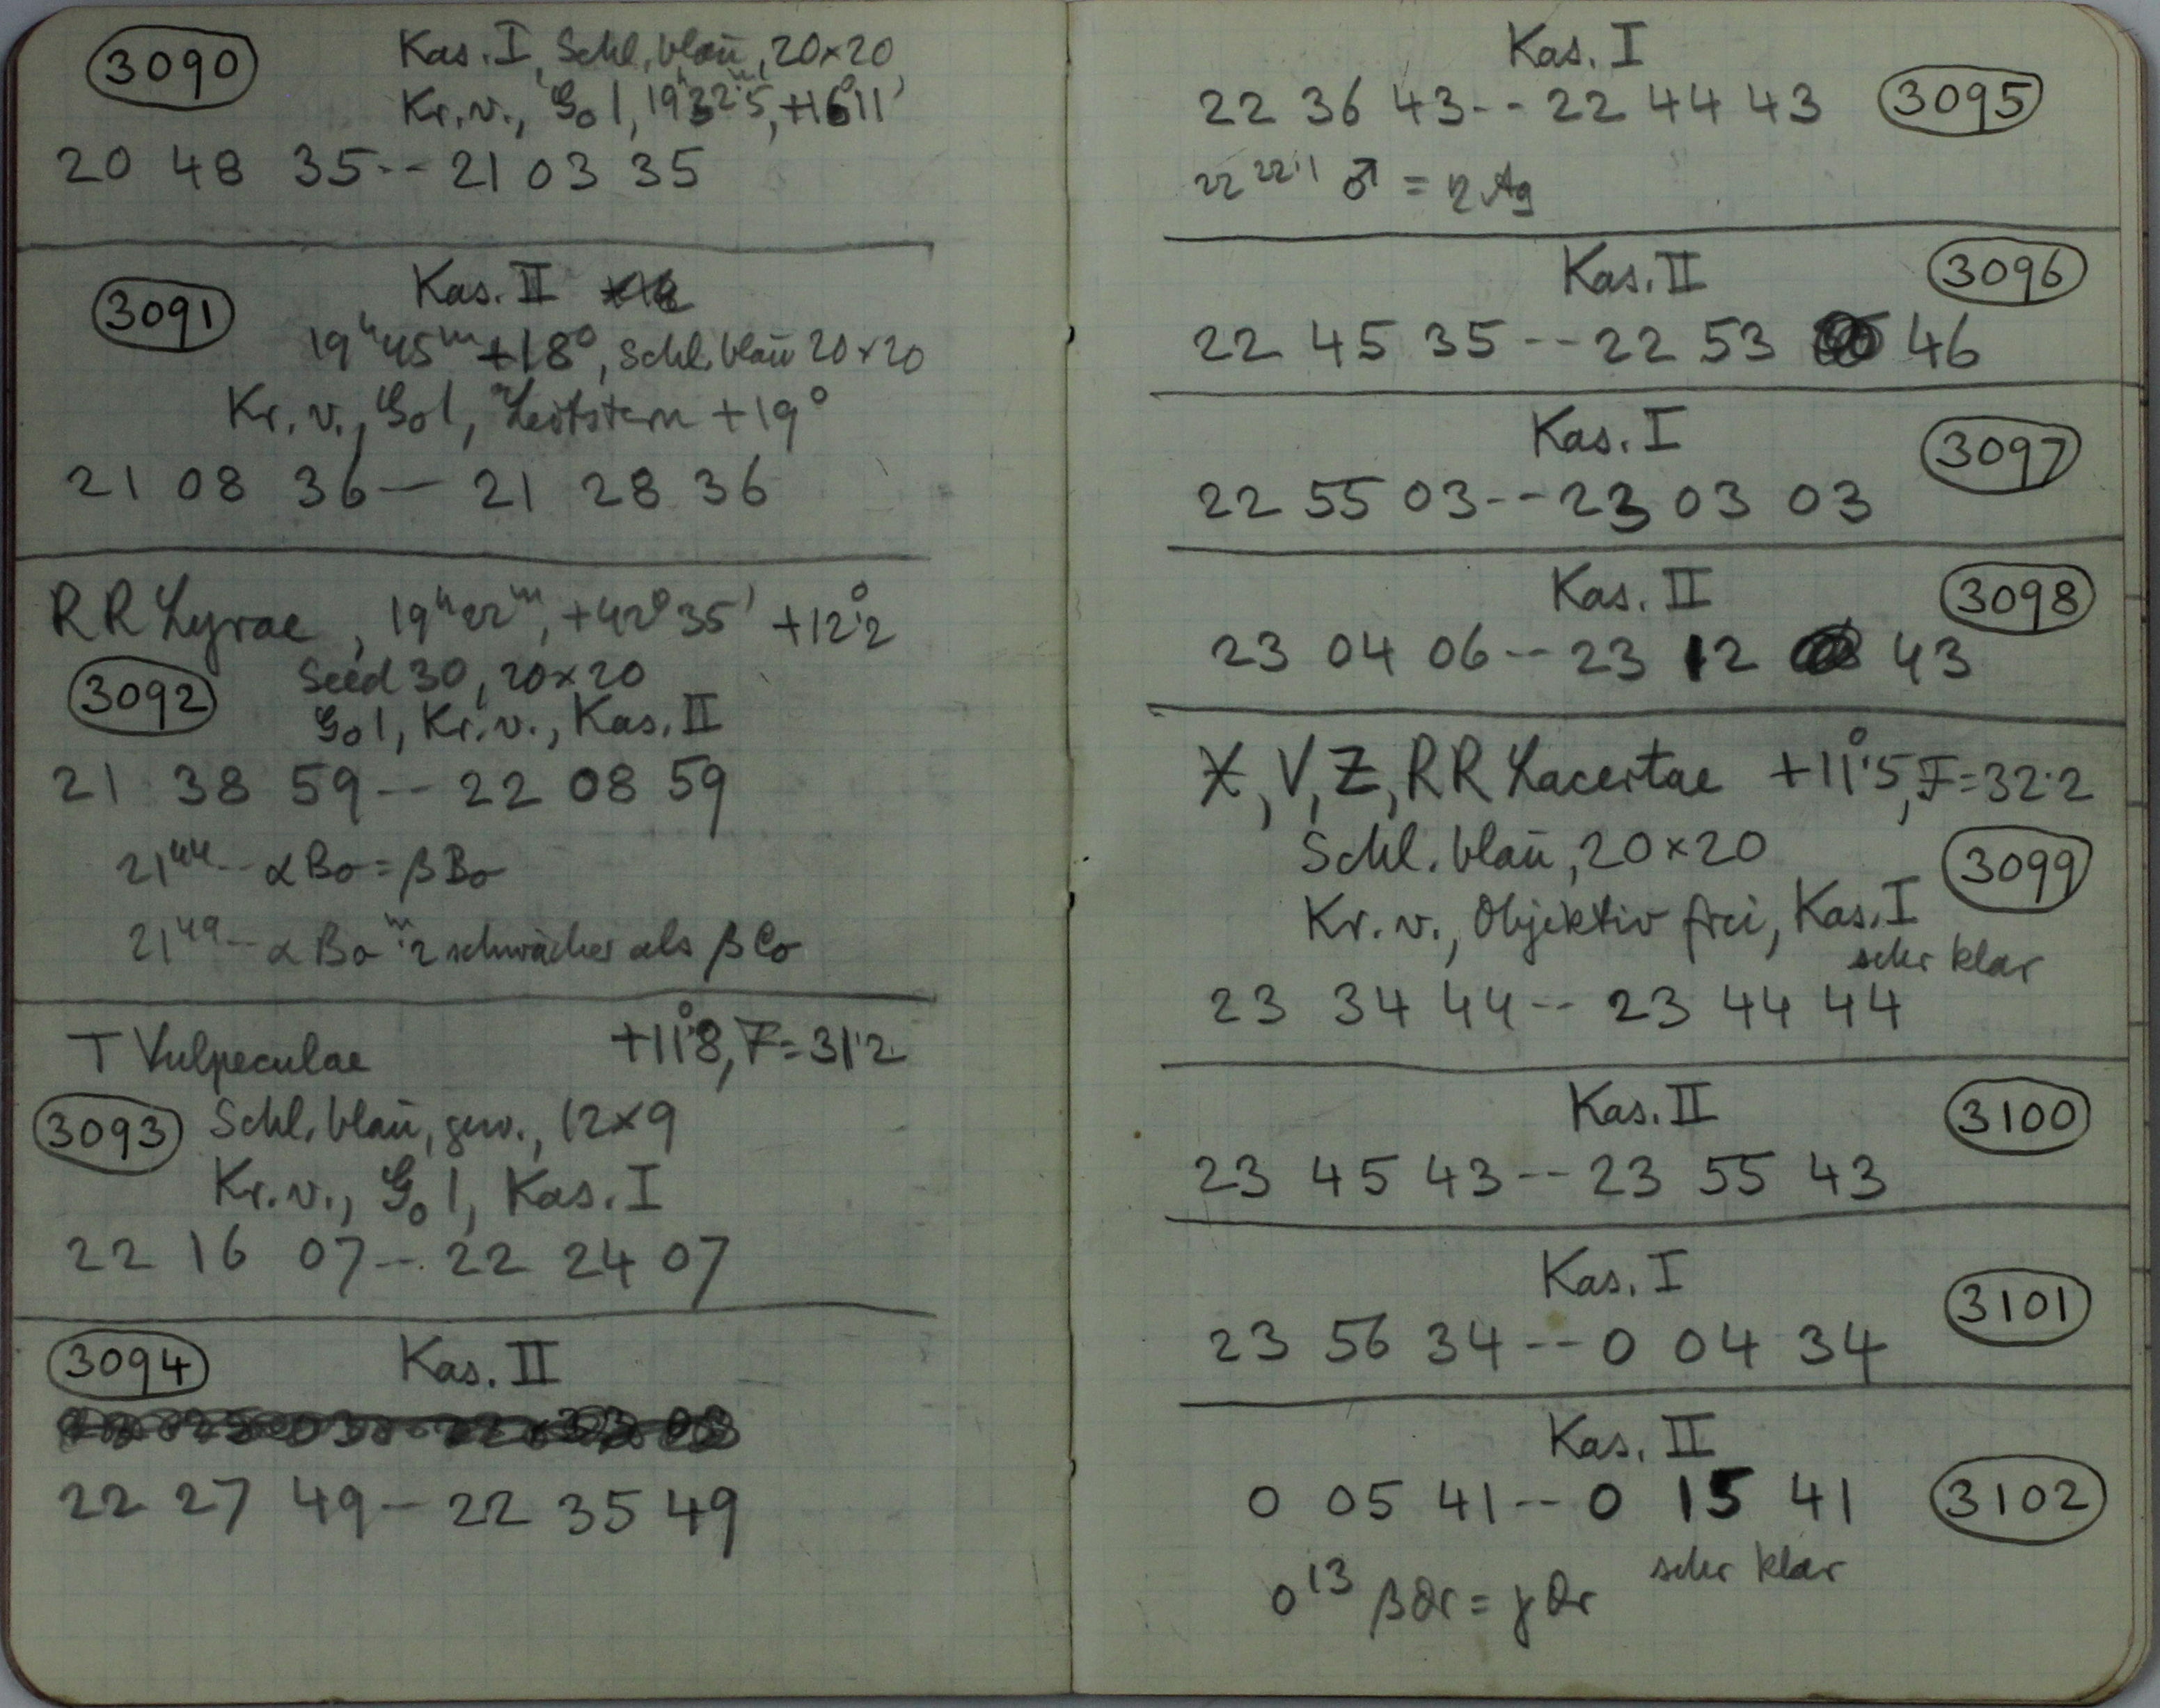 3090 Kas. I, Schl. blau, 20×20
Kr. v., Go 1, 19h32m.5, +16°11'
20 48 35-- 21 03 35
3091 Kas. II
19h45m +18°, Schl. blau 20×20
Kr. v., Go 1, Leitstern +19°
21 08 36 — 21 28 36
RR Lyrae, 19h22m, +42°35' +12°.2
3092 Seed 30, 20×20
Go 1, Kr. v., Kas. II
21 38 59 -- 22 08 59
21⁴⁴-- αBo = βBo
21⁴⁹-- αBo m.2 schwächer als βCo
T Vulpeculae +11°.8, F=31.2
3093 Schl. blau, gew., 12×9
Kr. v., Go 1, Kas. I
22 16 07 -- 22 24 07
3094 Kas. II
22 27 49 -- 22 35 49
Kas. I
22 36 43 -- 22 44 43 3095
22 ²²·¹ ♂ = η Ag
Kas. II 3096
22 45 35 -- 22 53 46
Kas. I 3097
22 55 03 -- 23 03 03
Kas. II 3098
23 04 06 -- 23 12 43
X, V, Z, RR Lacertae +11°.5, F=32.2
Schl. blau, 20×20
3099
Kr. v., Objektiv frei, Kas. I
sehr klar
23 34 44 -- 23 44 44
Kas. II 3100
23 45 43 -- 23 55 43
Kas. I 3101
23 56 34 -- 0 04 34
Kas. II
0 05 41 -- 0 15 41 3102
0¹³ βDr = γDr sehr klar